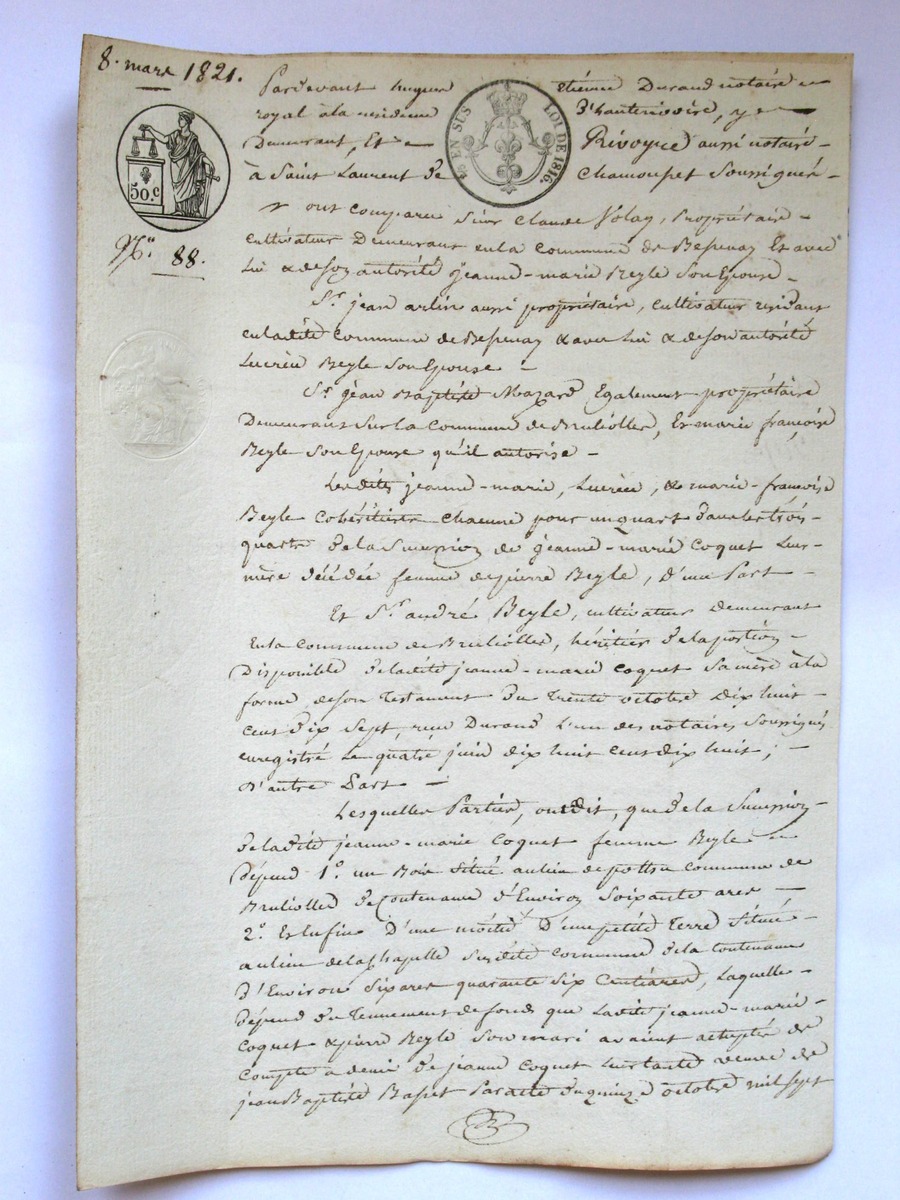 8. mars 1821.
Pardevant hugues etienne Durand notaire
royal à la residence D'hauterivoire, y
Demeurant, Et Privoyne aussi notaire
à Saint Laurent de Chamousset Soussignés
EN SUS
LOI DE 1816.
50.c
No. 88.
ont comparu Sieur Claude Volay, propriétaire
cultivateur Demeurant en la commune de Bessenay Et avec
lui & de son autorité jeanne-marie Beyle Son Epouse
Sr. jean aussi propriétaire, cultivateur residant
en ladite commune de Bessenay & avec lui & de son autorité
Lucrèce Beyle Son Epouse
Sr. jean Baptiste Mazard Egalement propriétaire
Demeurant Sur la Commune de Brulioller, Et marie françoise
Beyle Son Epouse qu'il autorise
Lesdites jeanne-marie, Lucrèce, & marie-francoise
Beyle Cohéritieres Chacune pour un quart dans les trois
quarts de la Succession de jeanne-marie Coquet Leur
mère décédée femme de pierre Beyle, d'une Part
Et Sr. andré Beyle, cultivateur Demeurant
En la Commune de Brulioller, héritier de la portion
Disponible de ladite jeanne-marie Coquet Sa mère à la
forme de son Testament du Trente octobre Dix huit
Cent Dix Sept, reçu Durand L'un des notaires Soussignés
enregistré Le quatre juin dix huit cent dix huit;
D'autre Part
Lesquelles Parties, ont dit, que de la Succession
de ladite jeanne-marie Coquet femme Beyle
Dépend 1o. un Bois Situé au lieu de commune de
Brulioller de Contenance d'Environ Soixante ares
2o. Et Enfin D'une moitié D'une petite Terre Située
au lieu de la Chapelle Susdite Commune de la Contenance
D'Environ Six ares quarante Six Centiares, Laquelle
dépend du Tennement de fonds que Ladite jeanne-marie
Coquet & pierre Beyle Son mari avaient de
Compte à demi de jeanne Coquet leur tante veuve de
jean Baptiste Basset Par acte du quinze octobre mil sept